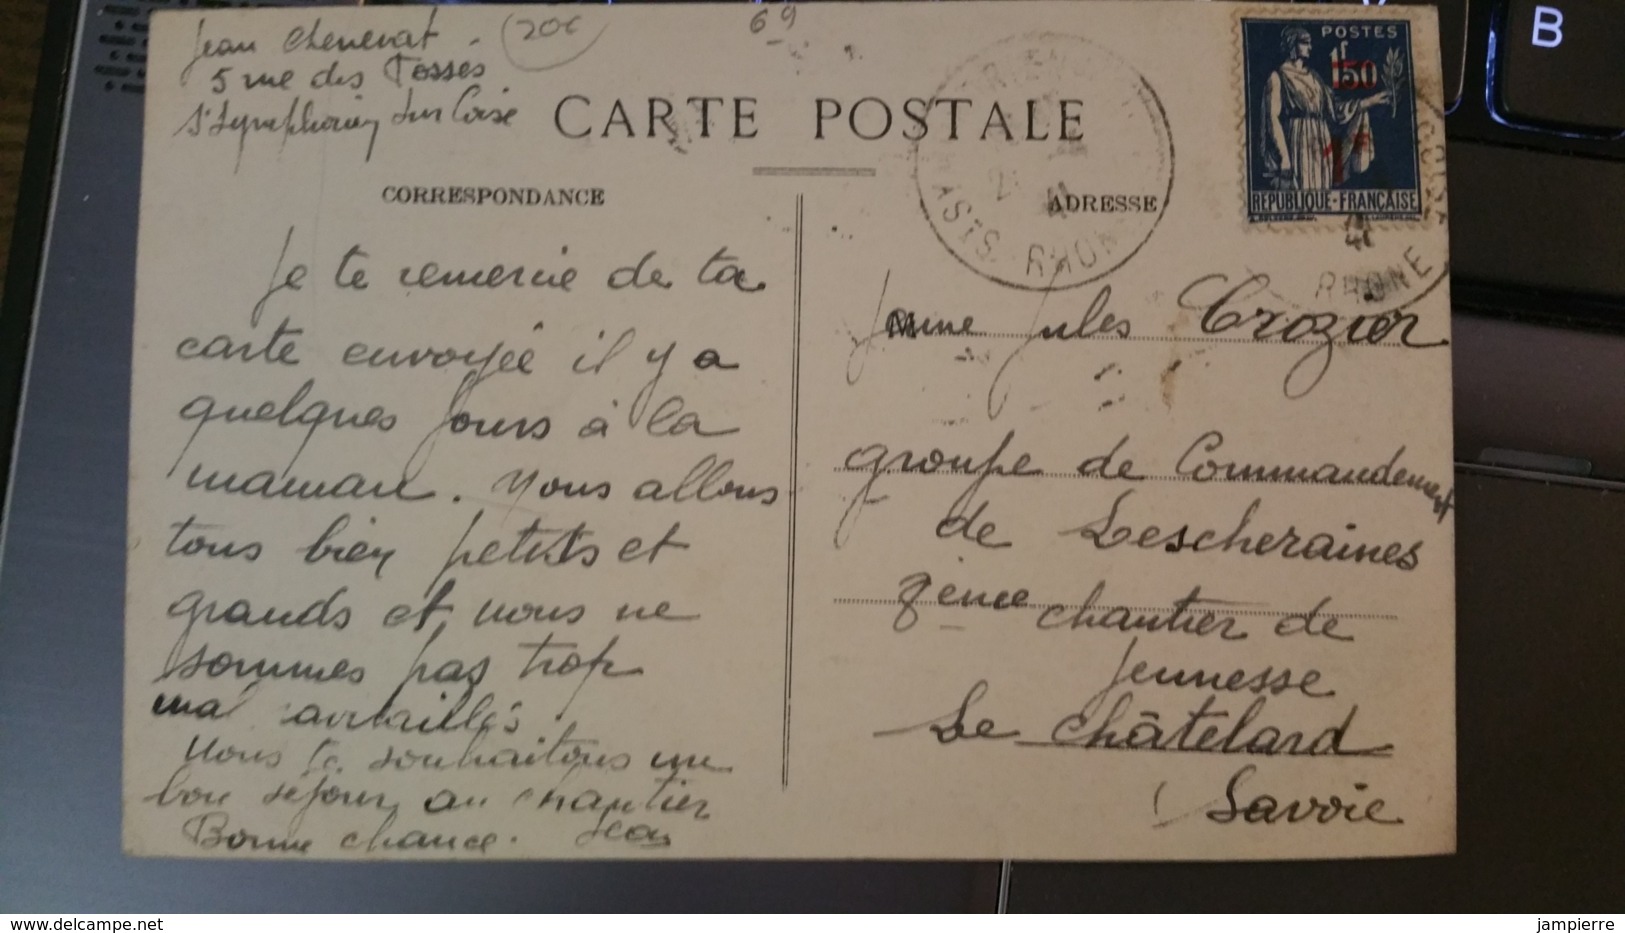 Jean Chenevat
5 rue des Fosses
St Symphorien sur Coise
20€
69
CARTE POSTALE
CORRESPONDANCE
ADRESSE
POSTES
1F50
1F
REPUBLIQUE-FRANÇAISE
RHONE
RHONE
Je te remercie de ta
carte envoyée il y a
quelques jours à la
maman. Nous allons
tous bien petits et
grands et nous ne
sommes pas trop
mal ravitaillés.
Nous te souhaitons un
bon séjour au chantier
Bonne chance. Jean
Jeune Jules Crozier
groupe de Commandement
de Lescheraines
8ème chantier de
Jeunesse
Le Châtelard
Savoie
B
delcampe.net
jampierre